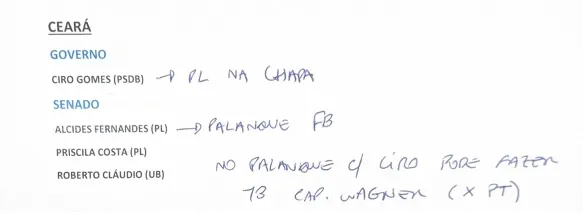 CEARÁ
GOVERNO
CIRO GOMES (PSDB) → PL NA CHAPA
SENADO
ALCIDES FERNANDES (PL) → PALANQUE FB
PRISCILA COSTA (PL)
NO PALANQUE C/ CIRO PODE FAZER
ROBERTO CLÁUDIO (UB)
TB CAP. WAGNER (X PT)